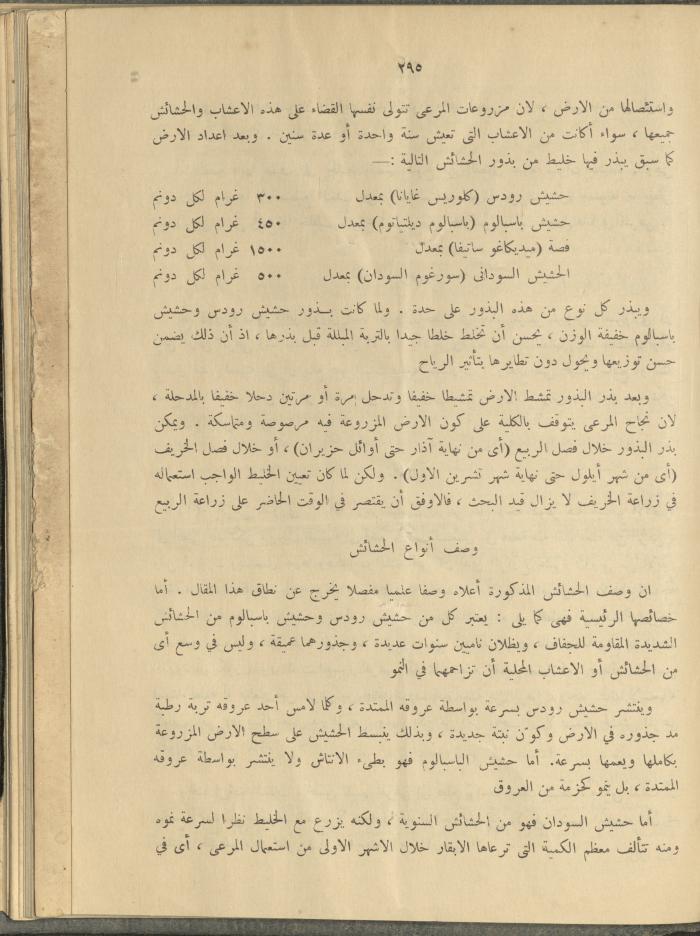 ٢٩٥
واستئصالها من الارض ، لان مزروعات المرعى تتولى نفسها القضاء على هذه الاعشاب والحشائش
جميعها ، سواء أكانت من الاعشاب التى تعيش سنة واحدة أو عدة سنين . وبعد اعداد الارض
كما سبق يبذر فيها خليط من بذور الحشائش التالية :—
حشيش رودس (كلوريس غايانا) بمعدل ٣٠٠ غرام لكل دونم
حشيش باسبالوم (باسبالوم ديلتياتوم) بمعدل ٤٥٠ غرام لكل دونم
فصة (ميديكاغو ساتيفا) بمعدل ١٥٠٠ غرام لكل دونم
الحشيش السودانى (سورغوم السودان) بمعدل ٥٠٠ غرام لكل دونم
ويبذر كل نوع من هذه البذور على حدة . ولما كانت بـذور حشيش رودس وحشيش
باسبالوم خفيفة الوزن ، يحسن أن تخلط خلطا جيدا بالتربة المبللة قبل بذرها ، اذ أن ذلك يضمن
حسن توزيعها ويحول دون تطايرها بتأثير الرياح
وبعد بذر البذور تمشط الارض تمشيطا خفيفا وتدحل مرة أو مرتين دحلا خفيفا بالمدحلة ،
لان نجاح المرعى يتوقف بالكلية على كون الارض المزروعة فيه مرصوصة ومتماسكة . ويمكن
بذر البذور خلال فصل الربيع (أى من نهاية آذار حتى أوائل حزيران) ، أو خلال فصل الخريف
(أى من شهر أيلول حتى نهاية شهر تشرين الاول) . ولكن لما كان تعيين الخليط الواجب استعماله
في زراعة الخريف لا يزال قيد البحث ، فالاوفق أن يقتصر في الوقت الحاضر على زراعة الربيع
وصف أنواع الحشائش
ان وصف الحشائش المذكورة أعلاه وصفا علميا مفصلا يخرج عن نطاق هذا المقال . أما
خصائصها الرئيسية فهى كما يلى : يعتبر كل من حشيش رودس وحشيش باسبالوم من الحشائش
الشديدة المقاومة للجفاف ، ويظلان ناميين سنوات عديدة ، وجذورهما عميقة ، وليس في وسع أى
من الحشائش أو الاعشاب المحلية أن تزاحمهما في النمو
وينتشر حشيش رودس بسرعة بواسطة عروقه الممتدة ، وكلما لامس أحد عروقه تربة رطبة
مد جذوره في الارض وكوّن نبتة جديدة ، وبذلك ينبسط الحشيش على سطح الارض المزروعة
بكاملها ويعمها بسرعة. أما حشيش الباسبالوم فهو بطىء الانتاش ولا ينتشر بواسطة عروقه
الممتدة ، بل ينمو كحزمة من العروق
أما حشيش السودان فهو من الحشائش السنوية ، ولكنه يزرع مع الخليط نظرا لسرعة نموه
ومنه تتألف معظم الكمية التى ترعاها الابقار خلال الاشهر الاولى من استعمال المرعى ، أى في